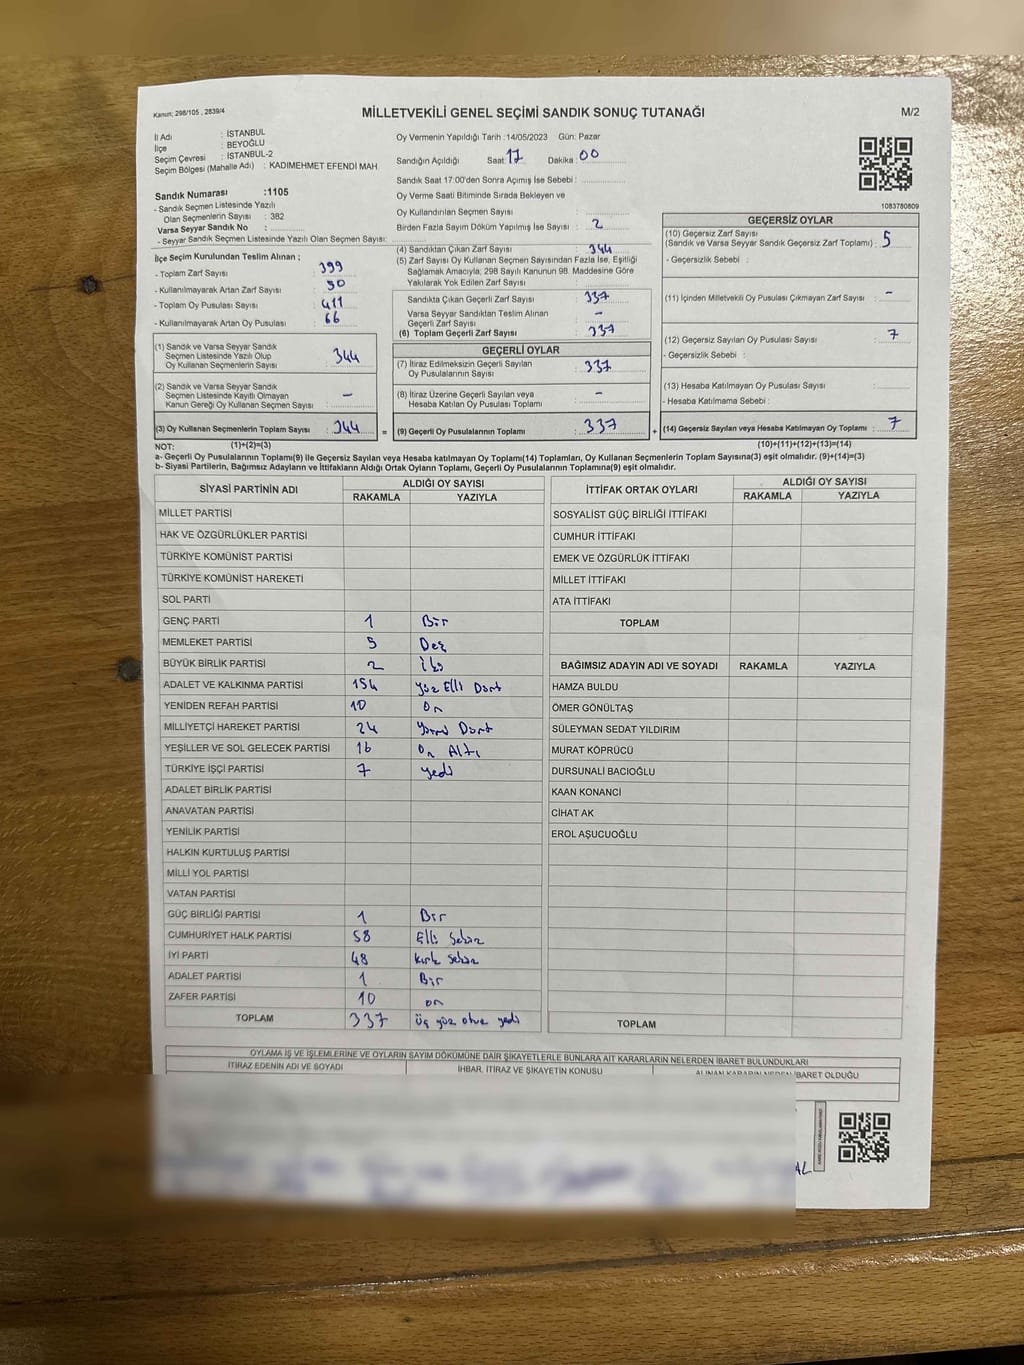 Kanun; 298/105 , 2839/4
MİLLETVEKİLİ GENEL SEÇİMİ SANDIK SONUÇ TUTANAĞI
M/2
İl Adı : İSTANBUL
İlçe : BEYOĞLU
Seçim Çevresi : İSTANBUL-2
Seçim Bölgesi (Mahalle Adı) : KADIMEHMET EFENDİ MAH.
Sandık Numarası :1105
- Sandık Seçmen Listesinde Yazılı
Olan Seçmenlerin Sayısı : 382
Varsa Seyyar Sandık No :
- Seyyar Sandık Seçmen Listesinde Yazılı Olan Seçmen Sayısı:
İlçe Seçim Kurulundan Teslim Alınan ;
- Toplam Zarf Sayısı : 399
- Kullanılmayarak Artan Zarf Sayısı : 50
- Toplam Oy Pusulası Sayısı : 411
- Kullanılmayarak Artan Oy Pusulası : 66
(1) Sandık ve Varsa Seyyar Sandık
Seçmen Listesinde Yazılı Olup
Oy Kullanan Seçmenlerin Sayısı : 344
(2) Sandık ve Varsa Seyyar Sandık
Seçmen Listesinde Kayıtlı Olmayan
Kanun Gereği Oy Kullanan Seçmen Sayısı : -
(3) Oy Kullanan Seçmenlerin Toplam Sayısı : 344 =
Oy Vermenin Yapıldığı Tarih :14/05/2023 Gün: Pazar
Sandığın Açıldığı Saat: 17 Dakika: 00
Sandık Saat 17:00'den Sonra Açımış İse Sebebi :
Oy Verme Saati Bitiminde Sırada Bekleyen ve
Oy Kullandırılan Seçmen Sayısı :
Birden Fazla Sayım Döküm Yapılmış İse Sayısı : 2
(4) Sandıktan Çıkan Zarf Sayısı : 344
(5) Zarf Sayısı Oy Kullanan Seçmen Sayısından Fazla İse, Eşitliği
Sağlamak Amacıyla, 298 Sayılı Kanunun 98. Maddesine Göre
Yakılarak Yok Edilen Zarf Sayısı :
Sandıkta Çıkan Geçerli Zarf Sayısı : 337
Varsa Seyyar Sandıktan Teslim Alınan
Geçerli Zarf Sayısı : -
(6) Toplam Geçerli Zarf Sayısı : 337
GEÇERLİ OYLAR
(7) İtiraz Edilmeksizin Geçerli Sayılan
Oy Pusulalarının Sayısı : 337
(8) İtiraz Üzerine Geçerli Sayılan veya
Hesaba Katılan Oy Pusulası Toplamı : -
(9) Geçerli Oy Pusulalarının Toplamı : 337 +
1083780809
GEÇERSİZ OYLAR
(10) Geçersiz Zarf Sayısı
(Sandık ve Varsa Seyyar Sandık Geçersiz Zarf Toplamı) : 5
- Geçersizlik Sebebi :
(11) İçinden Milletvekili Oy Pusulası Çıkmayan Zarf Sayısı : -
(12) Geçersiz Sayılan Oy Pusulası Sayısı : 7
- Geçersizlik Sebebi :
(13) Hesaba Katılmayan Oy Pusulası Sayısı :
- Hesaba Katılmama Sebebi :
(14) Geçersiz Sayılan veya Hesaba Katılmayan Oy Toplamı : 7
NOT: (1)+(2)=(3) (10)+(11)+(12)+(13)=(14)
a- Geçerli Oy Pusulalarının Toplamı(9) ile Geçersiz Sayılan veya Hesaba katılmayan Oy Toplamı(14) Toplamları, Oy Kullanan Seçmenlerin Toplam Sayısına(3) eşit olmalıdır. (9)+(14)=(3)
b- Siyasi Partilerin, Bağımsız Adayların ve İttifakların Aldığı Ortak Oyların Toplamı, Geçerli Oy Pusulalarının Toplamına(9) eşit olmalıdır.
SİYASİ PARTİNİN ADI ALDIĞI OY SAYISI
RAKAMLA YAZIYLA
MİLLET PARTİSİ
HAK VE ÖZGÜRLÜKLER PARTİSİ
TÜRKİYE KOMÜNİST PARTİSİ
TÜRKİYE KOMÜNİST HAREKETİ
SOL PARTİ
GENÇ PARTİ 1 Bir
MEMLEKET PARTİSİ 5 Beş
BÜYÜK BİRLİK PARTİSİ 2 İki
ADALET VE KALKINMA PARTİSİ 154 yüz Elli Dört
YENİDEN REFAH PARTİSİ 10 On
MİLLİYETÇİ HAREKET PARTİSİ 24 Yirmi Dört
YEŞİLLER VE SOL GELECEK PARTİSİ 16 On Altı
TÜRKİYE İŞÇİ PARTİSİ 7 yedi
ADALET BİRLİK PARTİSİ
ANAVATAN PARTİSİ
YENİLİK PARTİSİ
HALKIN KURTULUŞ PARTİSİ
MİLLİ YOL PARTİSİ
VATAN PARTİSİ
GÜÇ BİRLİĞİ PARTİSİ 1 Bir
CUMHURİYET HALK PARTİSİ 58 Elli Sekiz
İYİ PARTİ 48 kırk Sekiz
ADALET PARTİSİ 1 Bir
ZAFER PARTİSİ 10 on
TOPLAM 337 üç yüz otuz yedi
İTTİFAK ORTAK OYLARI ALDIĞI OY SAYISI
RAKAMLA YAZIYLA
SOSYALİST GÜÇ BİRLİĞİ İTTİFAKI
CUMHUR İTTİFAKI
EMEK VE ÖZGÜRLÜK İTTİFAKI
MİLLET İTTİFAKI
ATA İTTİFAKI
TOPLAM
BAĞIMSIZ ADAYIN ADI VE SOYADI RAKAMLA YAZIYLA
HAMZA BULDU
ÖMER GÖNÜLTAŞ
SÜLEYMAN SEDAT YILDIRIM
MURAT KÖPRÜCÜ
DURSUNALİ BACIOĞLU
KAAN KONANCI
CİHAT AK
EROL AŞUCUOĞLU
TOPLAM
OYLAMA İŞ VE İŞLEMLERİNE VE OYLARIN SAYIM DÖKÜMÜNE DAİR ŞİKAYETLERLE BUNLARA AİT KARARLARIN NELERDEN İBARET BULUNDUKLARI
İTİRAZ EDENİN ADI VE SOYADI İHBAR, İTİRAZ VE ŞİKAYETİN KONUSU ALINAN KARARIN NEDEN İBARET OLDUĞU
AL